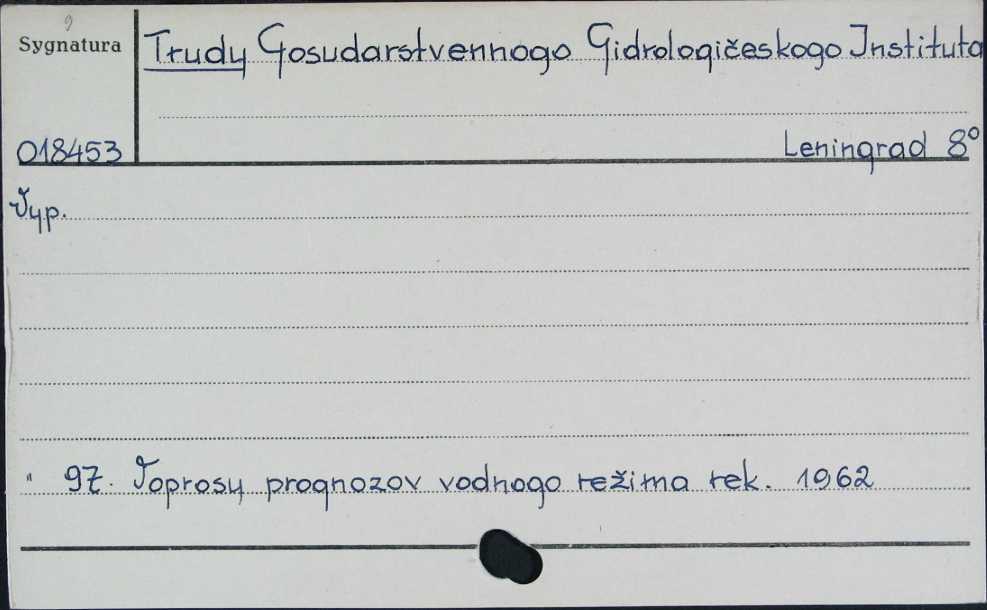 9
Sygnatura
Trudy Gosudarstvennogo Gidrologičeskogo Instituta
018453
Leningrad 8°
Vyp.
" 97. Voprosy prognozov vodnogo režima rek. 1962